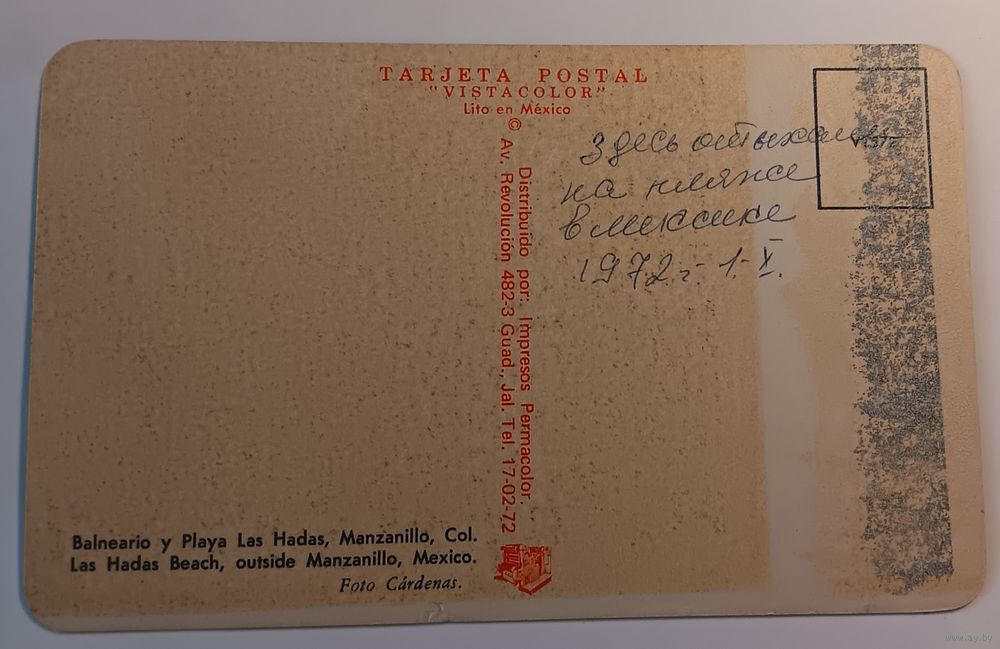 TARJETA POSTAL
"VISTACOLOR"
Lito en México
©
Distribuido por: Impresos Permacolor.
Av. Revolución 482-3 Guad., Jal. Tel. 17-02-72
Здесь отыхали
на пляже
в мексике
1972 г. 1. X.
Balneario y Playa Las Hadas, Manzanillo, Col.
Las Hadas Beach, outside Manzanillo, Mexico.
Foto Cárdenas.
www.ay.by